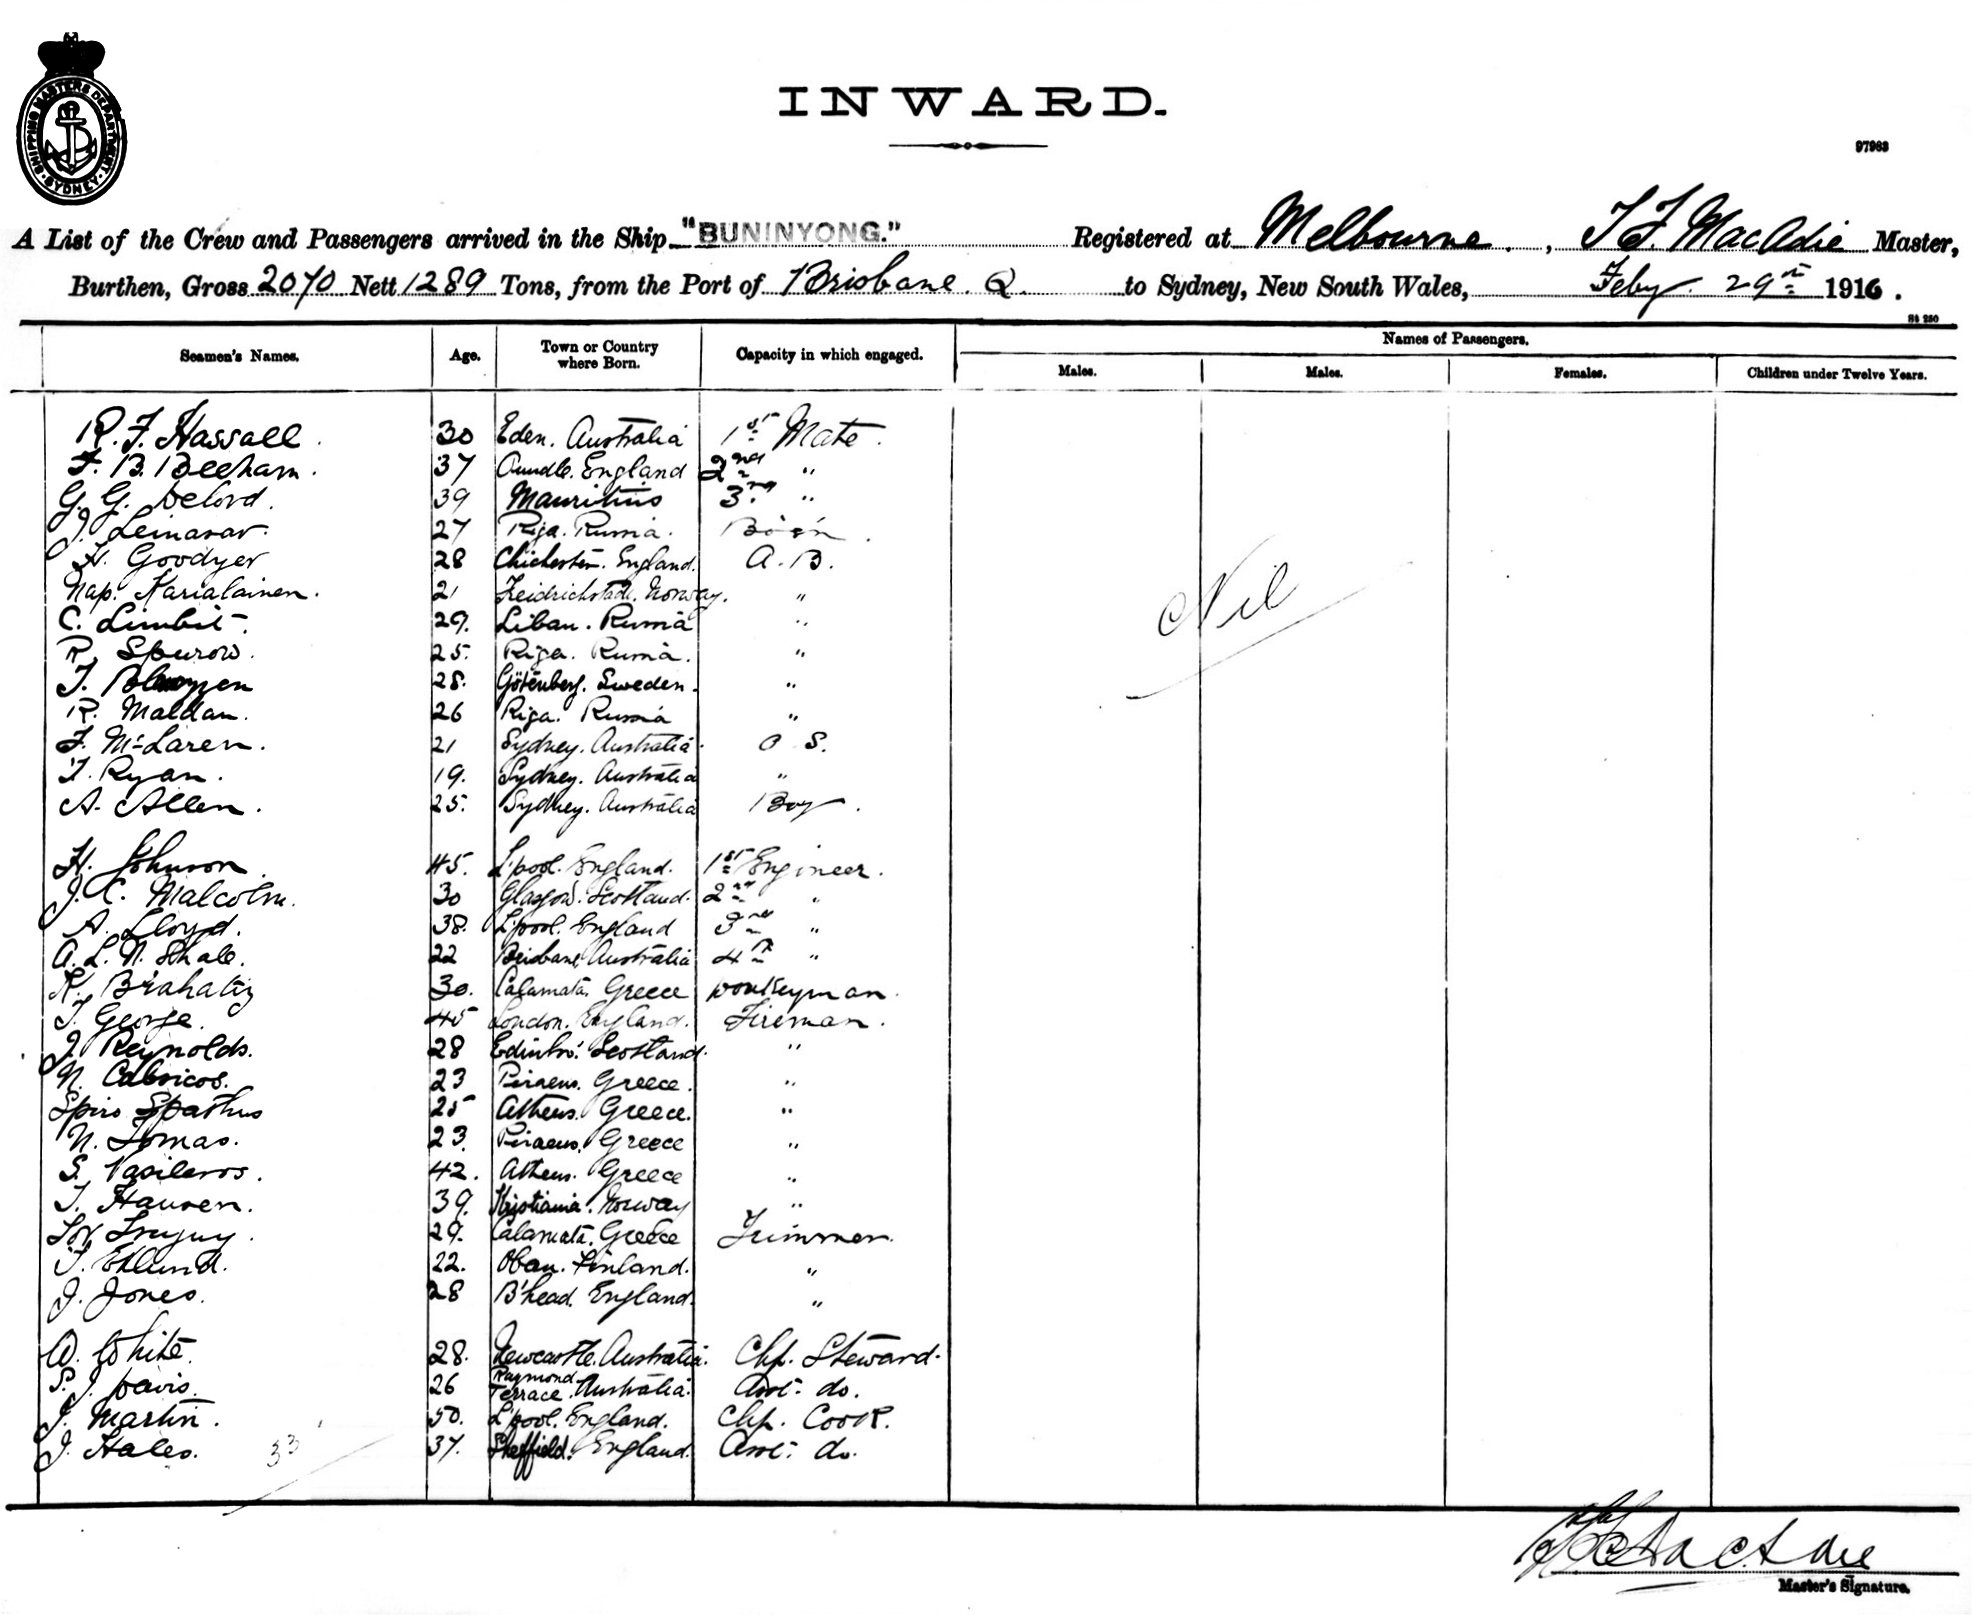 SHIPPING MASTERS DEPARTMENT. SYDNEY.
INWARD.
97983
A List of the Crew and Passengers arrived in the Ship "BUNINYONG." Registered at Melbourne, T. F. MacAdie Master,
Burthen, Gross 2070 Nett 1289 Tons, from the Port of Brisbane. Q. to Sydney, New South Wales, Feby. 29th 1916.
St 230
Seamen's Names. Age. Town or Country where Born. Capacity in which engaged. Names of Passengers.
Males. Males. Females. Children under Twelve Years.
R. F. Hassall. 30 Eden. Australia 1st Mate.
F. B. Beeham. 37 Oundle. England 2nd "
G. G. Delord. 39 Mauritius 3rd "
J. Leinasar. 27 Riga. Russia. Bo's'n.
H. Goodyer 28 Chichester. England. A.B.
Nap. Karialainen. 21 Freidrichstadt. Norway. "
C. Limbit. 29. Libau. Russia "
R. Spurow. 25. Riga. Russia. "
T. 28. Götenberg. Sweden. "
R. Maldan. 26 Riga. Russia "
F. McLaren. 21 Sydney. Australia. O.S.
T. Ryan. 19. Sydney. Australia "
A. Allen. 25. Sydney. Australia Boy.
Nil
H. Johnson. 45. L'pool. England. 1st Engineer.
J. C. Malcolm. 30 Glasgow. Scotland. 2nd "
A. Lloyd. 38. L'pool. England 3rd "
A. L. N. Shale. 22 Brisbane Australia 4th "
K. Brahatis 30. Calamata. Greece Donkeyman.
T. George. 45 London. England. Fireman.
J. Reynolds. 28 Edinbro'. Scotland. "
N. Cabricos. 23 Piraeus. Greece. "
Spiro Spathus 25 Athens. Greece. "
N. Tomas. 23. Piraeus. Greece "
S. Vasileros. 42. Athens. Greece "
T. Hansen. 39. Kristiania. Norway "
29. Calamata. Greece Trimmer.
T. Edlund. 22. Oban. Finland. "
J. Jones. 28 B'head. England. "
W. White. 28. Newcastle. Australia. Chf. Steward.
P. J. Davis. 26 Raymond Terrace. Australia. Asst. do.
J. Martin. 50. L'pool. England. Chf. Cook.
J. Hales. 37. Sheffield. England. Asst. do.
33
MacAdie
Master's Signature.